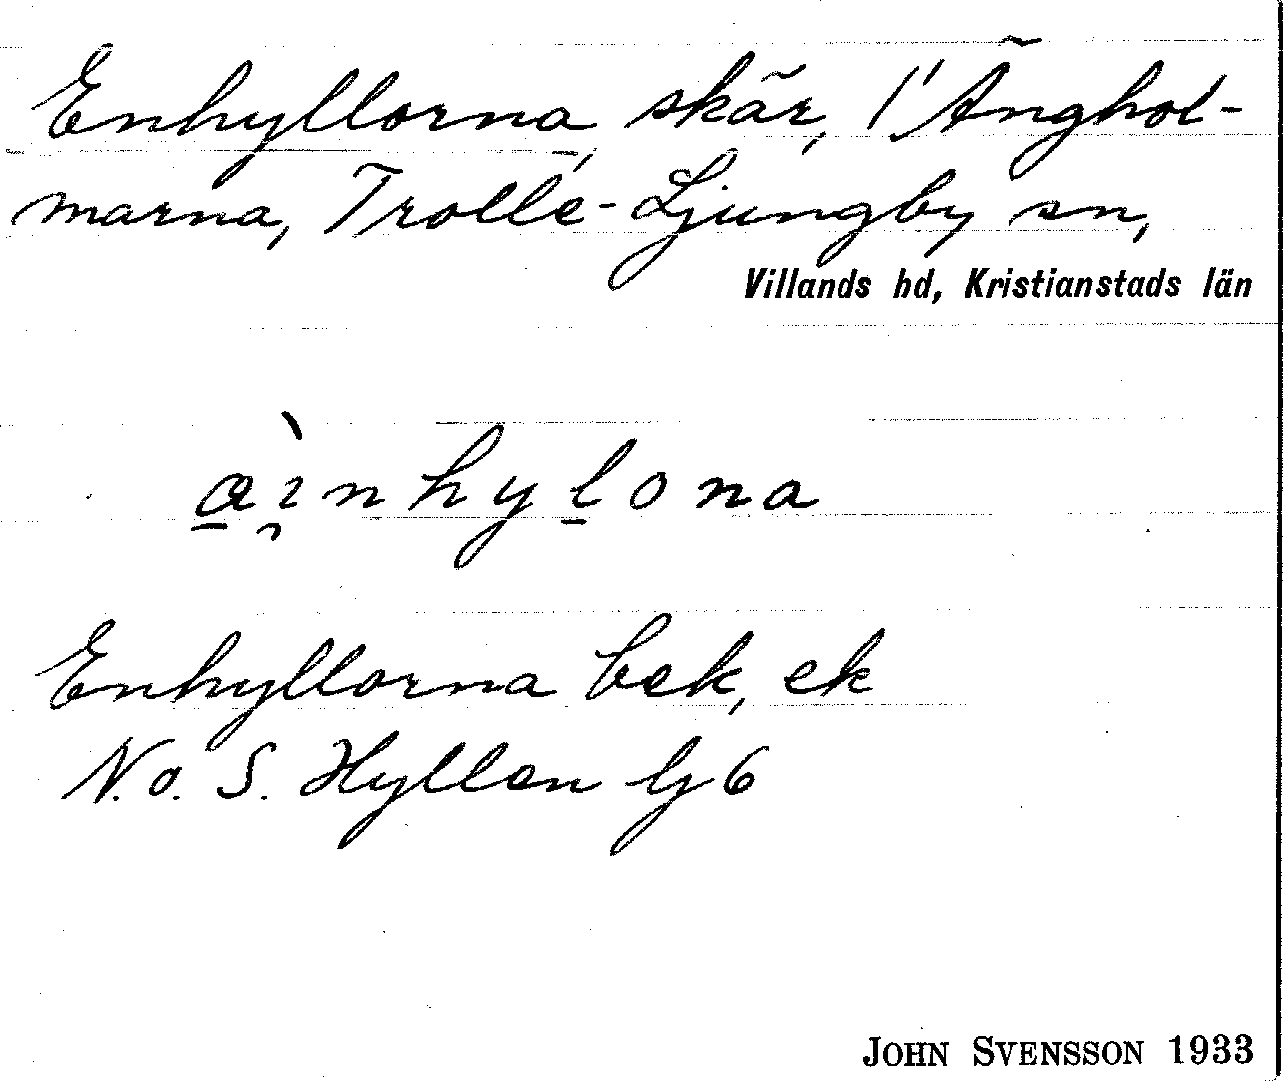 Enhyllorna, skär, i Änghol-
marna, Trolle-Ljungby sn,
Villands hd, Kristianstads län
a̠ı̀nhyl̠ona
Enhyllorna bek, ek
N. o. S. Hyllan lj 6
JOHN SVENSSON 1933